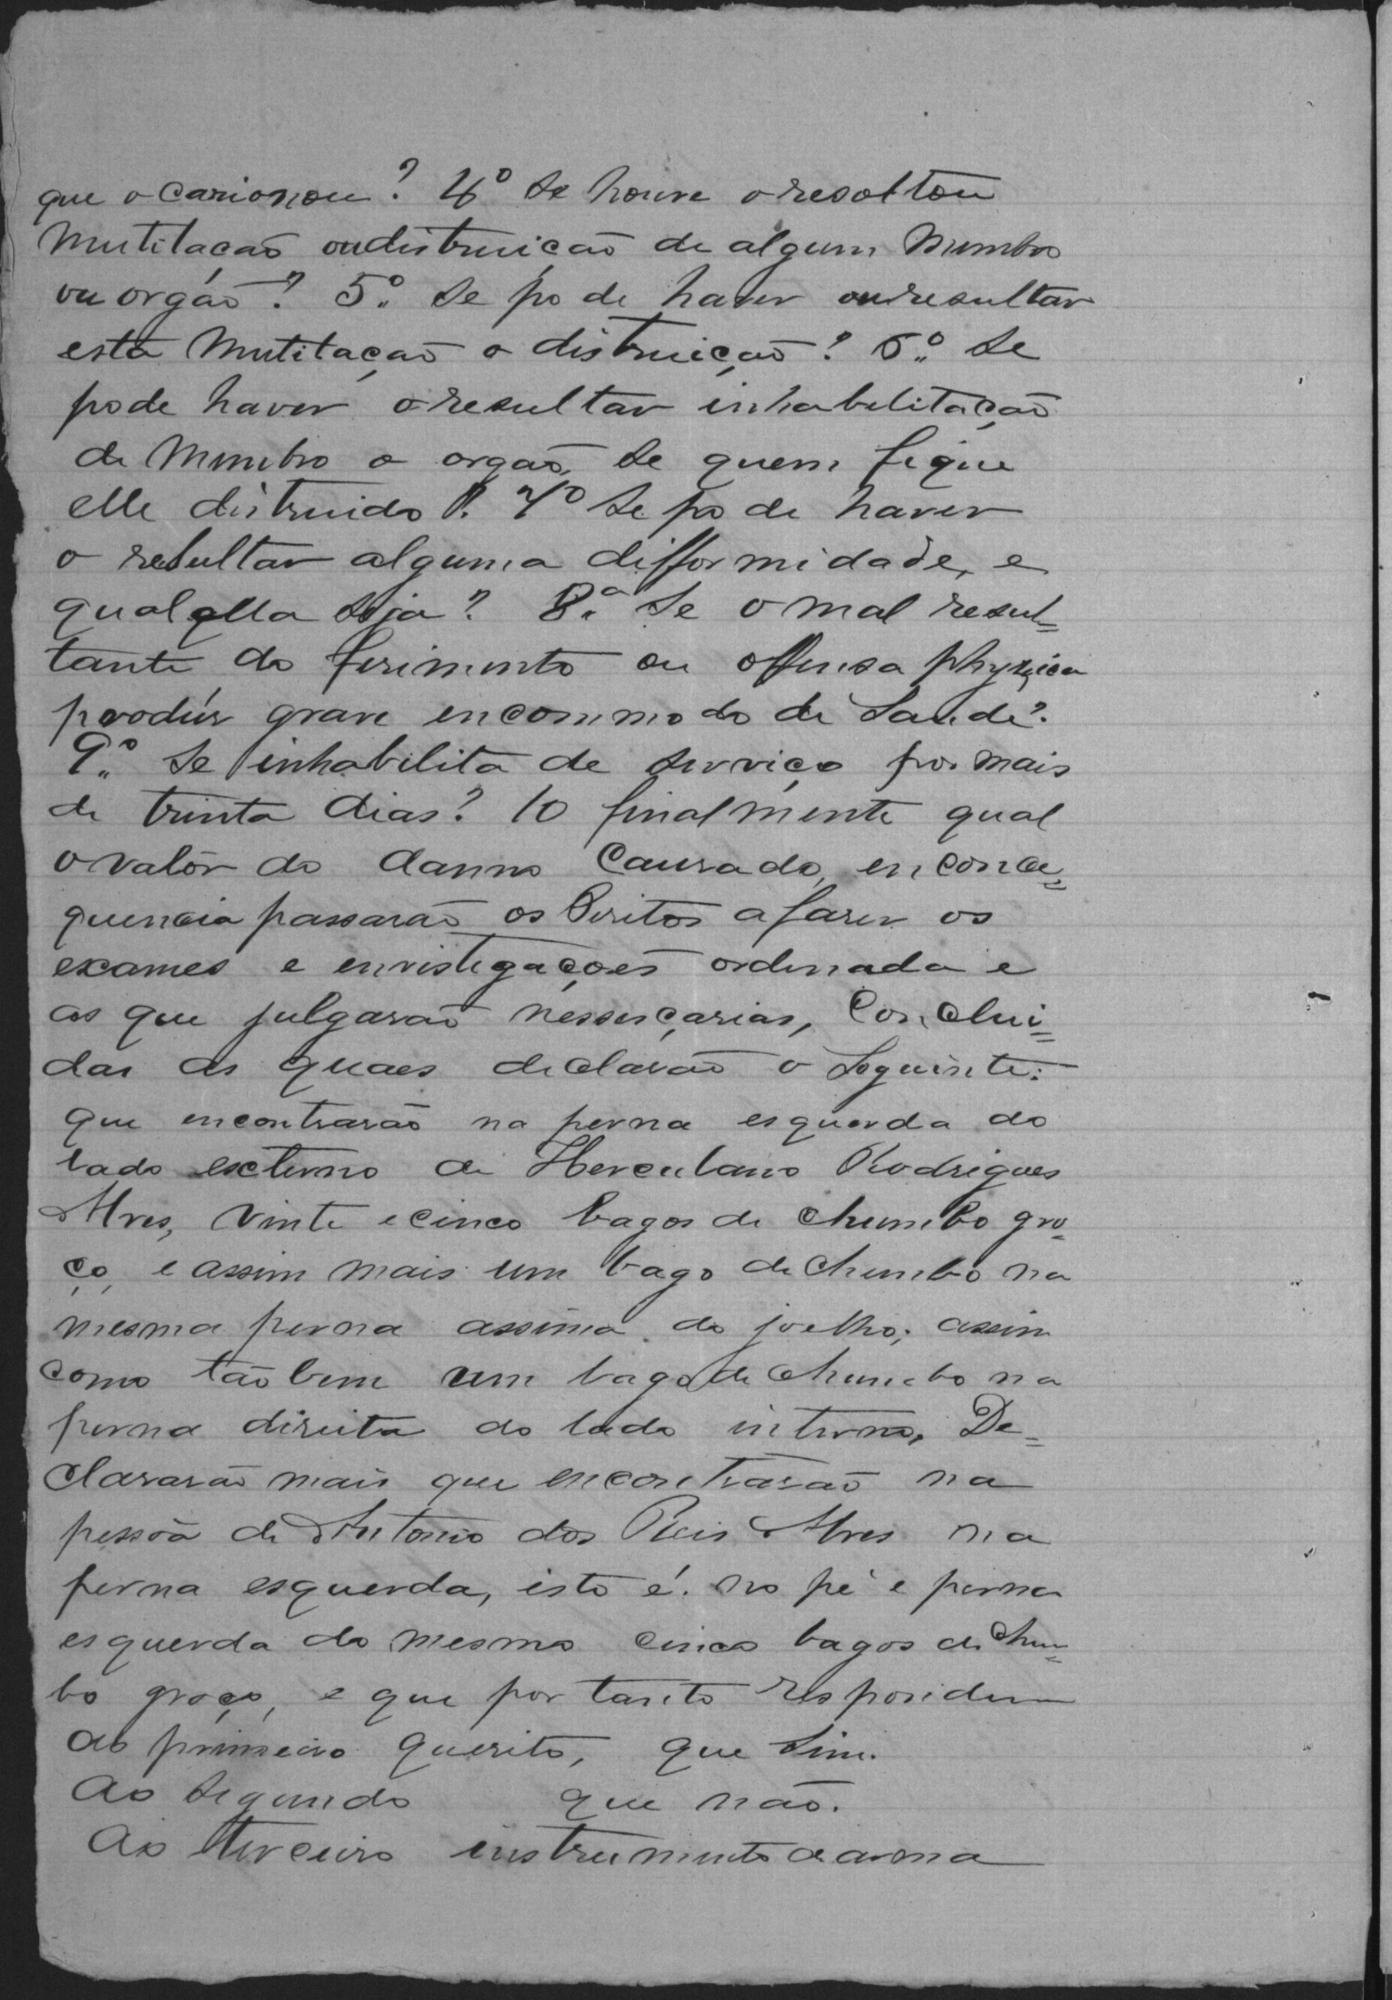 que ocarionou? 4º Se houve o resoltou
Mutilação ou distruição de algum Membro
ou orgão? 5º Se pode haver ou resultar
esta Mutilação o distruição? 6º Se
pode haver o resultar inhabilitação
de Membro o orgão, se quem fique
elle distruido? 7º Se pode haver
o resultar alguma difformidade, e
qual ella seja? 8ª Se o mal resul=
tante do ferimento ou offensa physica
prodús grave encommodo de Saude?
9º Se inhabilita de serviço por mais
de trinta dias? 10 finalmente qual
o valôr do damno Causado, en conce=
quencia passarão os Peritos a fazer os
exames e envistigações ordenada e
as que julgarão nessesçarias, Conclui=
das as quaes declarão o Seguinte:
que encontrarão na perna esquerda do
lado externo de Herculano Rodrigues
Alves, vinte e cinco bagos de chumbo gro=
ço, e assim mais um bago de chumbo na
mesma perna assima do joelho; assim
como tão bem um bago de chumbo na
perna direita do lado interno, De=
clararão mais que encontrarão na
pessôa de Antonio dos Reis Alves na
perna esquerda, isto é. no pé e perna
esquerda do mesmo cinco bagos de chum=
bo groço, e que por tanto respondem
ao primeiro quesito, que Sim.
Ao Segundo que não.
Ao terceiro instrumento a arma